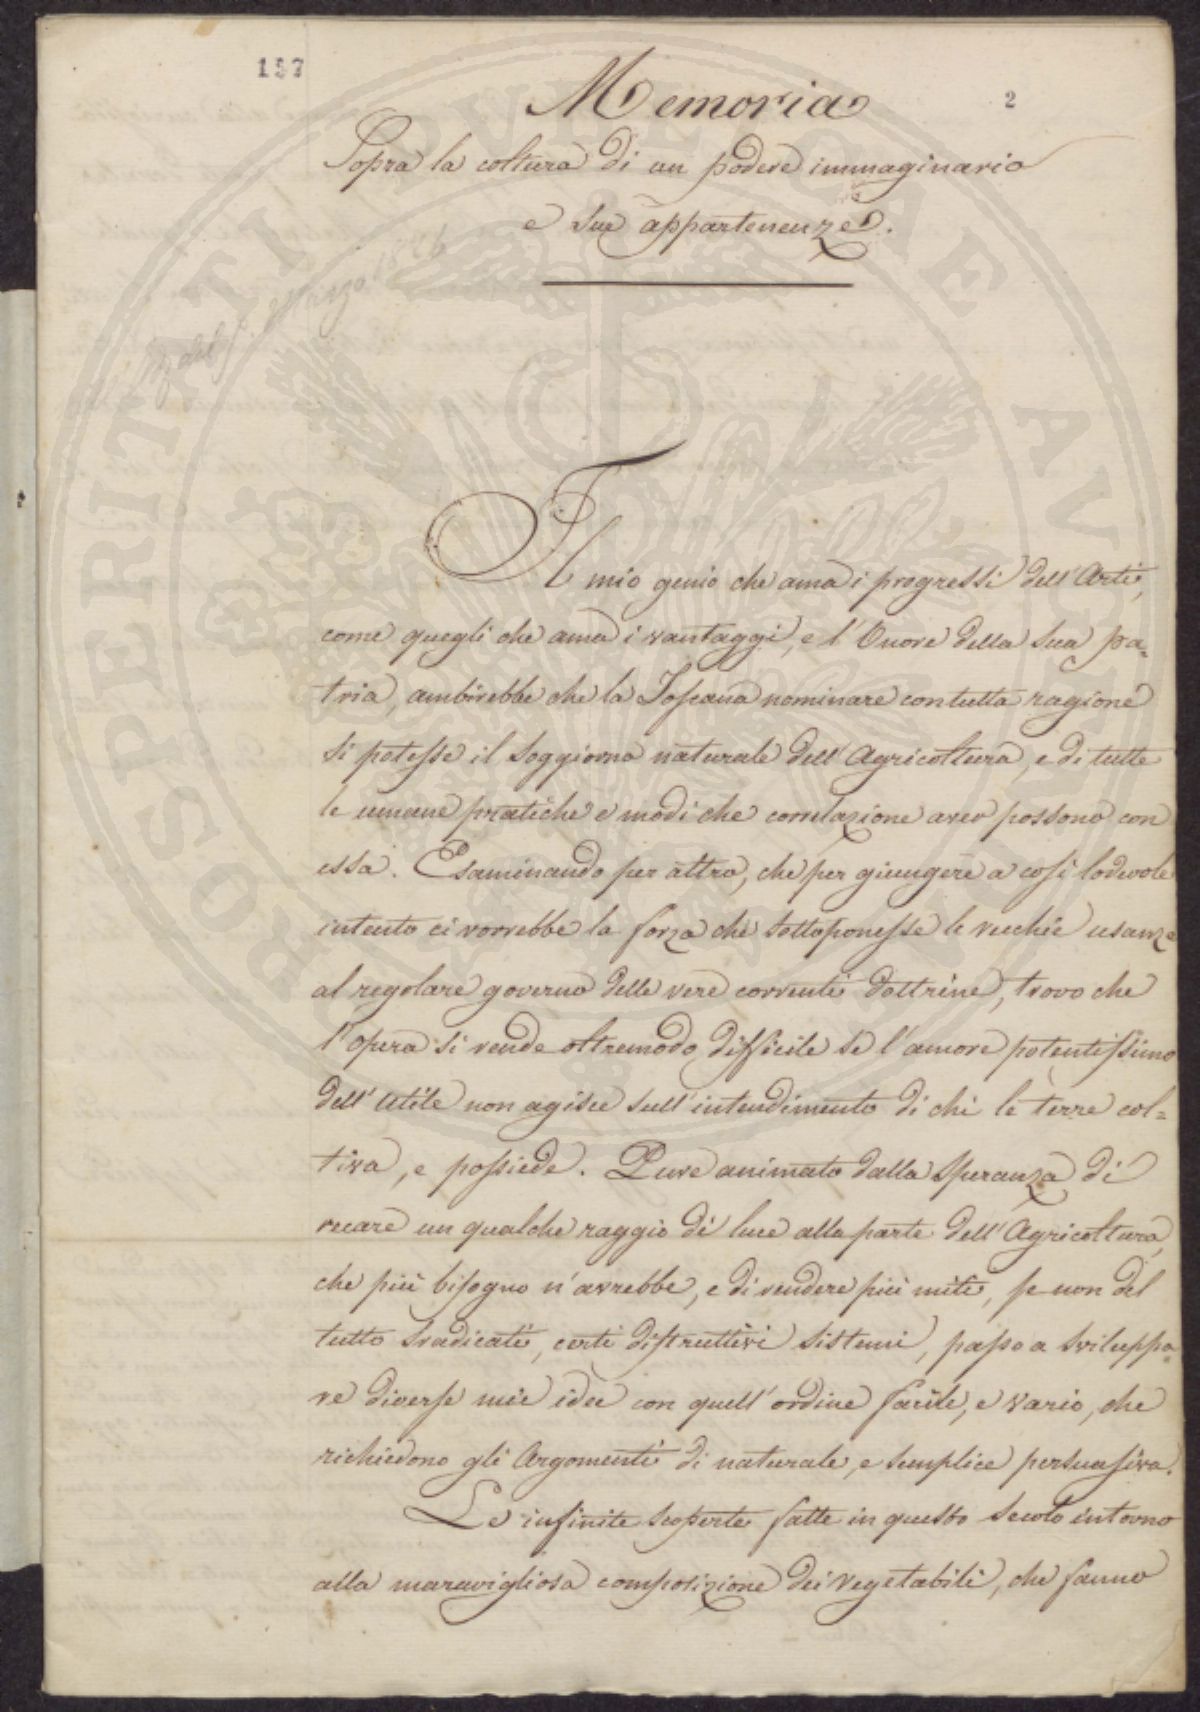 157
2
Memoria
Sopra la coltura di un podere immaginario
e sue appartenenze.
Marzo 18
Il mio genio che ama i progressi dell'Arti,
come quegli che ama i vantaggi, e l'Onore della sua pa=
tria, ambirebbe che la Toscana nominare con tutta ragione
si potesse il soggiorno naturale dell'Agricoltura, e di tutte
le umane pratiche e modi che correlazione aver possono con
essa. Esaminando per altro, che per giungere a così lodevole
intento ci vorrebbe la forza che sottoponesse le vecchie usanze
al regolare governo delle vere correnti dottrine, trovo che
l'opera si rende oltremodo difficile se l'amore potentissimo
dell'Utile non agisce sull'intendimento di chi le terre col=
tiva, e possiede. Pure animato dalla speranza di
recare un qualche raggio di luce alla parte dell'Agricoltura,
che più bisogno n'avrebbe, e di rendere più miti, se non del
tutto sradicati, certi distruttivi sistemi, passo a sviluppa=
re diverse mie idee con quell'ordine facile, e vario, che
richiedono gli Argomenti di naturale, e semplice persuasiva.
Le infinite scoperte fatte in questo secolo intorno
alla maravigliosa composizione dei vegetabili, che fanno
PROSPERITATI PUBLICAE AUGENDAE